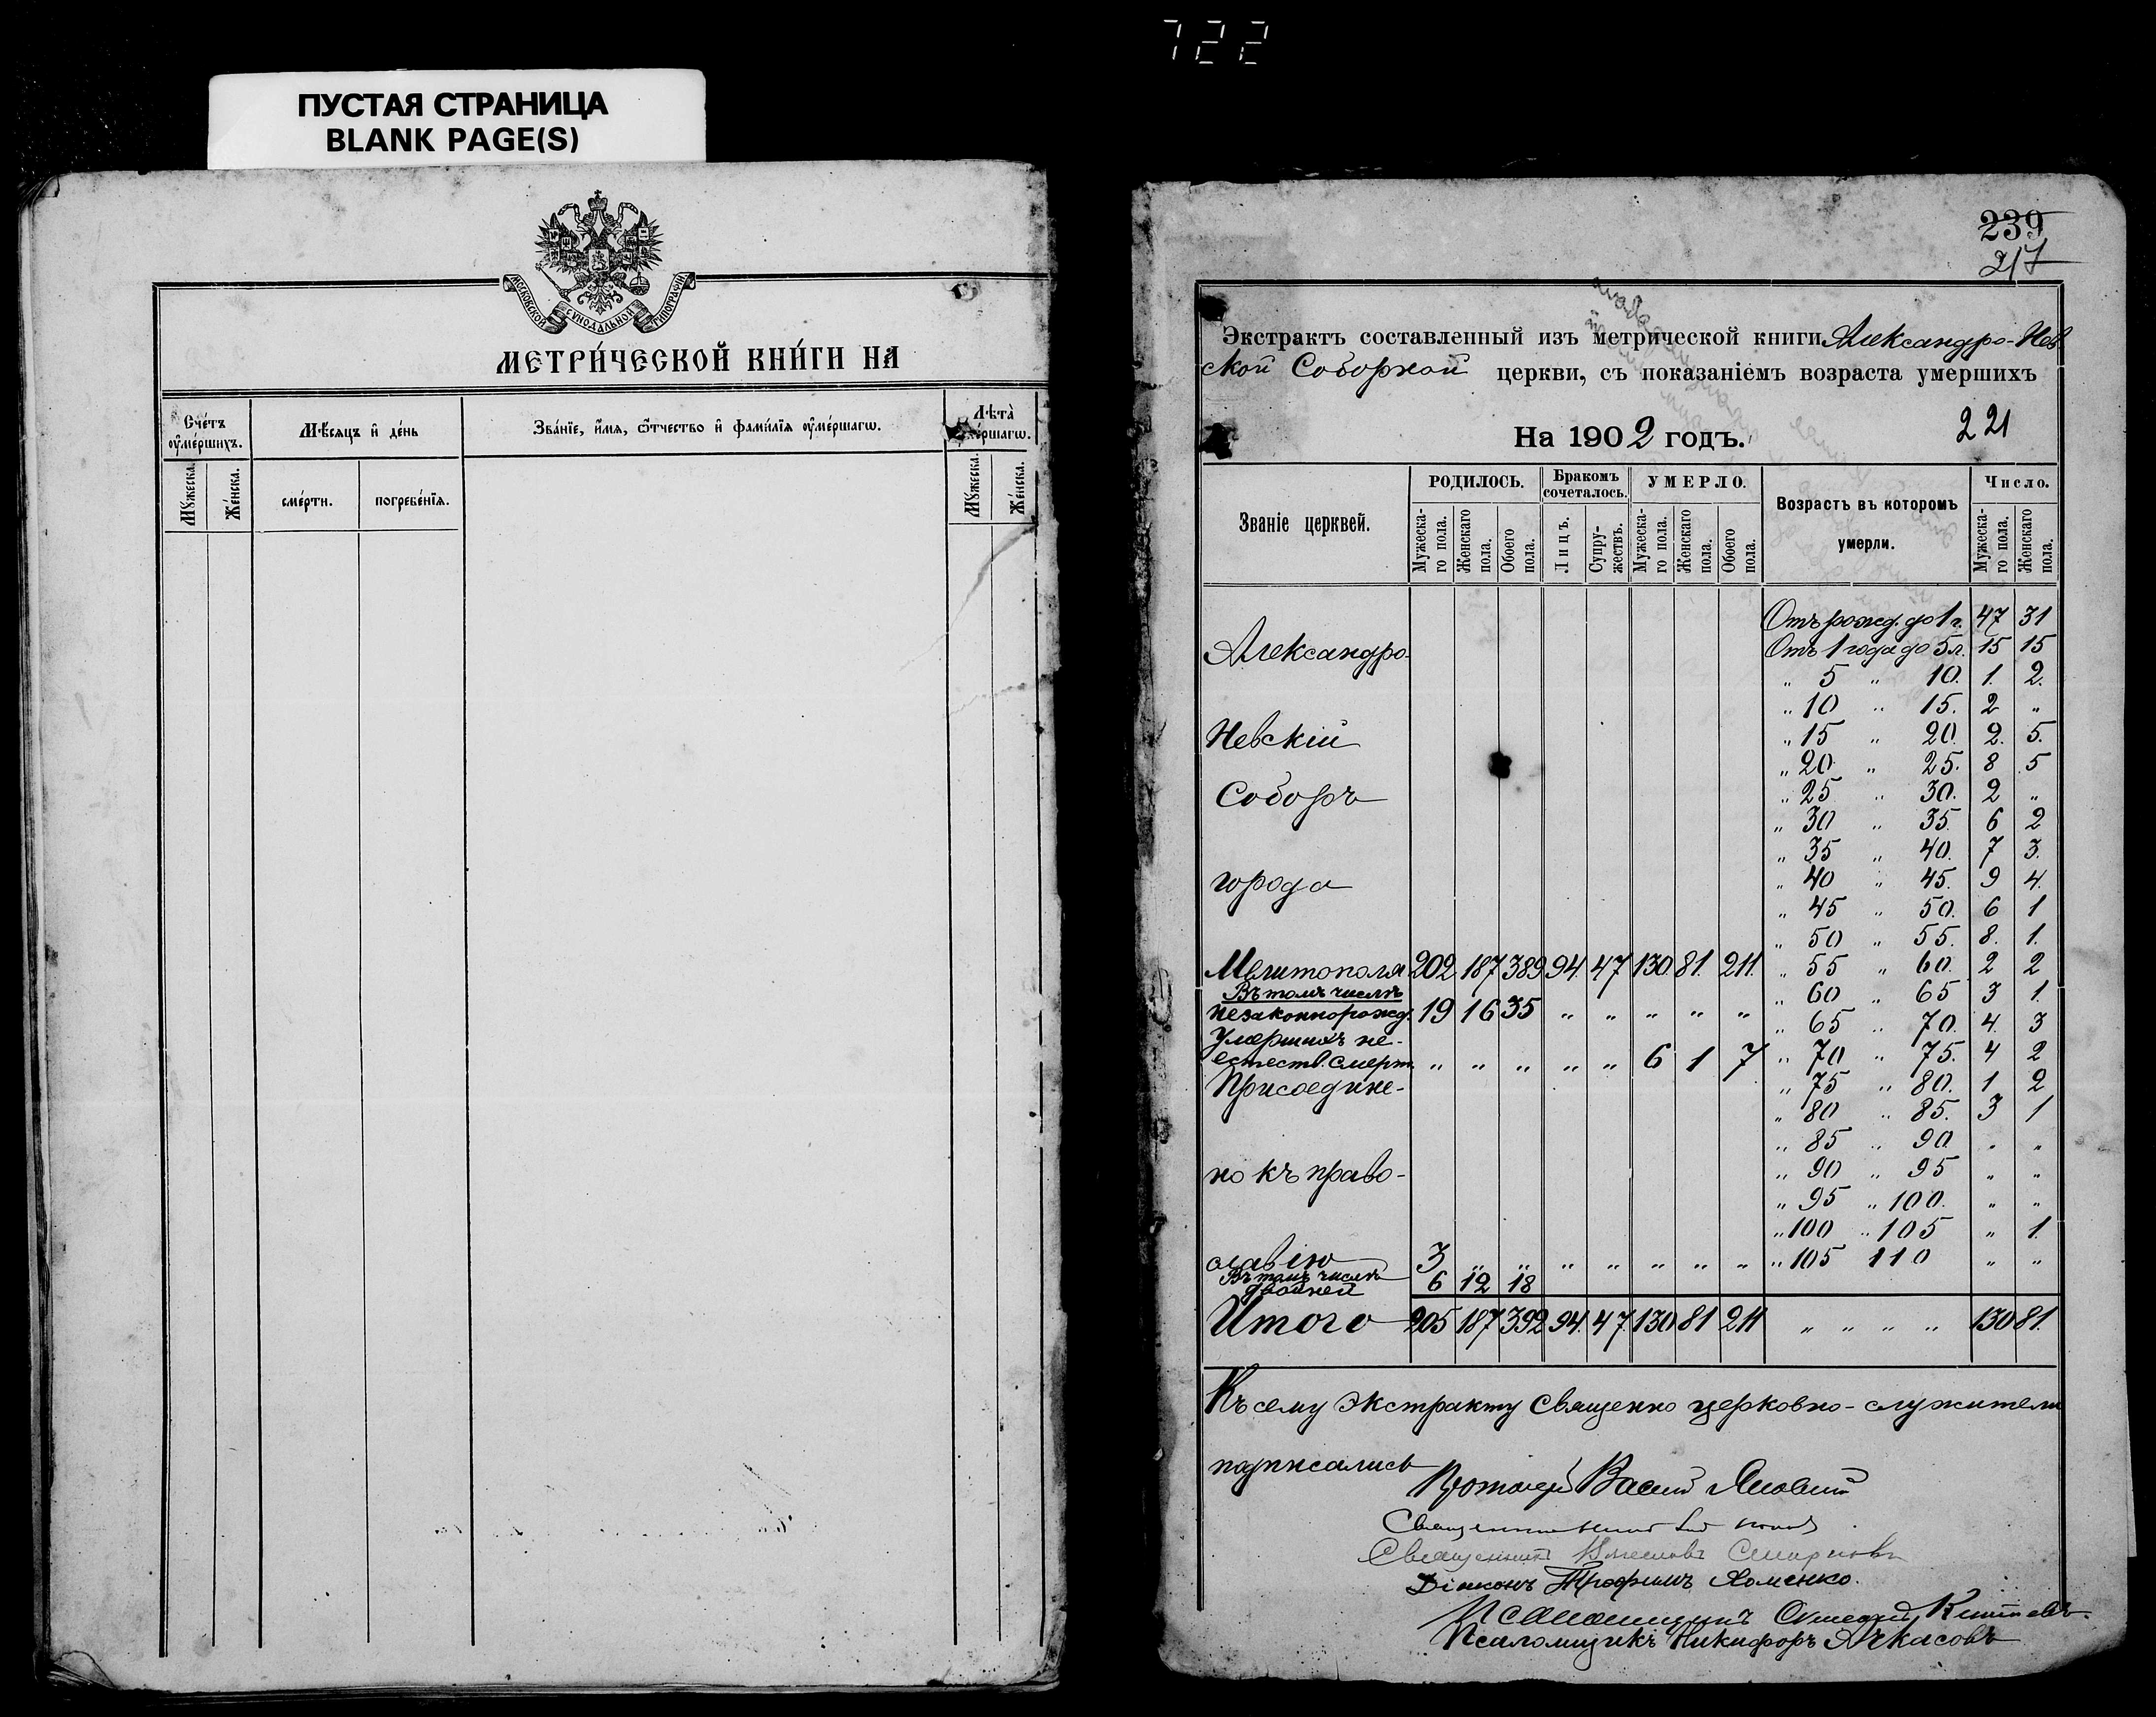 722
ПУСТАЯ СТРАНИЦА
BLANK PAGE(S)
МОСКОВСКОЙ СѴНОДАЛЬНОЙ ТИПОГРАФІИ
МЕТРИ́ЧЕСКОЙ КНИ́ГИ НА
Сче́тъ ᲂу҆ме́ршихъ.
Мѣ́сяцъ и҆ де́нь
Зва́нїе, и҆́мя, ѻ҆́тчество и҆ фами́лїя ᲂу҆ме́ршагѡ.
Лѣта̀
Мꙋ́жеска.
Же́нска.
сме́рти.
погребе́нїя.
Мꙋ́жеска.
Же́нска.
239
217
Экстрактъ составленный изъ метрической книги Александро-Нев
ской Соборной церкви, съ показаніемъ возраста умершихъ
На 1902 годъ.
221
Званіе церквей.
РОДИЛОСЬ.
Бракомъ сочеталось.
УМЕРЛО.
Возрастъ въ которомъ умерли.
Число.
Мужеска-го пола.
Женскаго пола.
Обоего пола.
Лицъ.
Супру-жествъ.
Мужеска-го пола.
Женскаго пола.
Обоего пола.
Мужеска-го пола.
Женскаго пола.
Отъ рожд. до 1 г. 47 31
Александро-
Отъ 1 года до 5 л. 15 15
„ 5 „ 10. 1. 2.
„ 10 „ 15. 2 „
Невскій
„ 15 „ 20. 2. 5.
„ 20 „ 25. 8 5
Соборъ
„ 25 „ 30. 2 „
„ 30 „ 35. 6 2
„ 35 „ 40. 7 3.
города
„ 40 „ 45. 9 4.
„ 45 „ 50. 6 1
„ 50 „ 55. 8. 1.
Мелитополя 202 187 389 94. 47 130. 81. 211. „ 55 „ 60. 2 2
Въ томъ числѣ
„ 60 „ 65 3 1.
незаконнорожд. 19 16 35 „ „ „ „ „
„ 65 „ 70. 4. 3
Умершихъ не-
естеств. смерт. „ „ „ „ „ 6 1 7 „ 70 „ 75. 4 2
Присоедине-
„ 75 „ 80. 1 2
„ 80 „ 85. 3 1
„ 85 „ 90. „ „
но къ право-
„ 90 „ 95 „ „
„ 95 „ 100. „ „
„ 100 „ 105 „ 1.
славію 3 „ „ „ „ „ „ „ „ 105 110 „ „
Въ томъ числѣ
двойней 6 12 18
Итого 205 187 392 94. 47. 130 81 211 „ „ „ „ 130 81.
Къ сему экстракту священно церковно-служители
подписались
Протоіерей Василій
Священникъ
Священникъ Смирновъ
Діаконъ Трофимъ Хоменко.
Псаломщикъ
Псаломщикъ Никифоръ